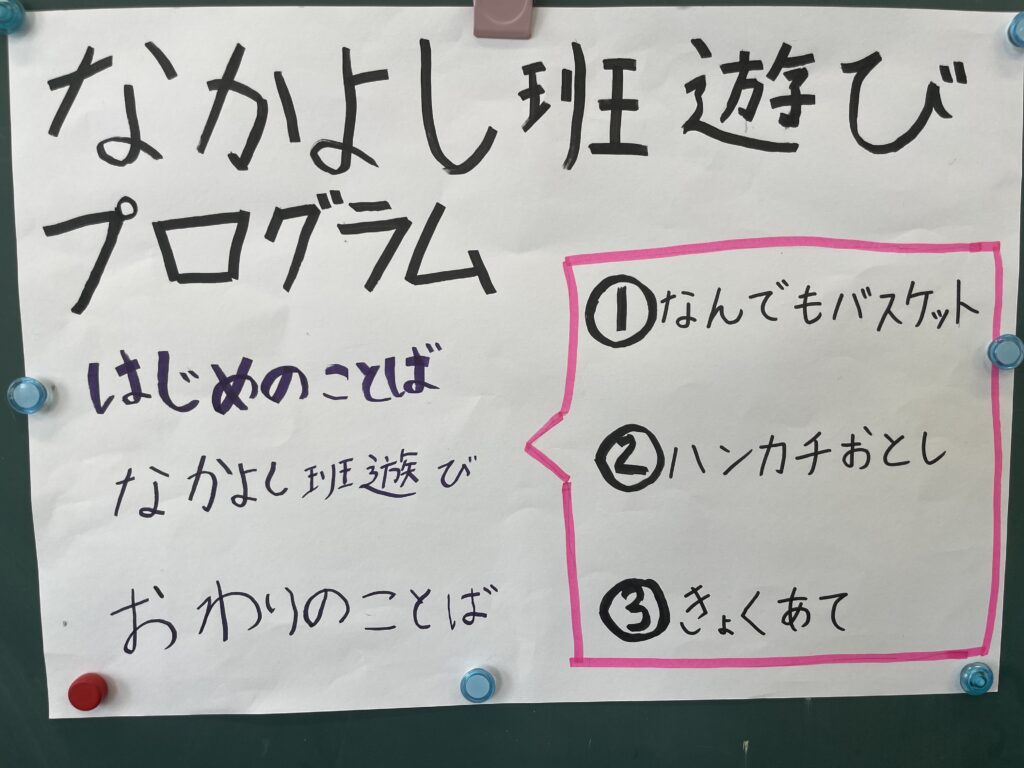 なかよし班遊び
プログラム
はじめのことば
なかよし班遊び
おわりのことば
①なんでもバスケット
②ハンカチおとし
③きょくあて